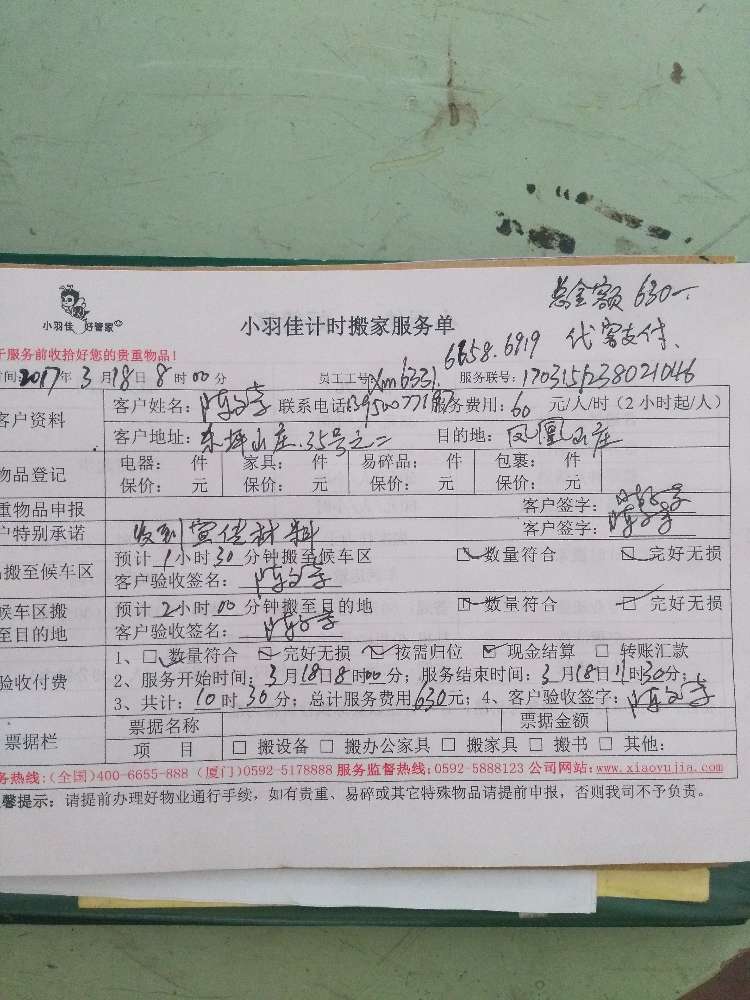 总金额 630一
小羽佳 好管家
小羽佳计时搬家服务单
6658.6919 代客支付、
于服务前收拾好您的贵重物品!
时间:2017年 3月18日 8时00分 员工工号:Xm6331 服务联号:170315123802 1046
客户资料
客户姓名: 联系电话: 服务费用:60 元/人/时(2小时起/人)
客户地址:东坪山庄.35号之二 目的地:凤凰山庄
物品登记
电器: 件 家具: 件 易碎品: 件 包裹: 件
保价: 元 保价: 元 保价: 元 保价: 元
重物品申报 客户签字:
户特别承诺 收到宣传材料 客户签字:
搬至候车区
预计1小时30分钟搬至候车区 数量符合 完好无损
客户验收签名:
候车区搬至目的地
预计2小时00分钟搬至目的地 数量符合 完好无损
客户验收签名:
验收付费
1、数量符合 完好无损 按需归位 现金结算 转账汇款
2、服务开始时间:3月18日8时00分;服务结束时间:3月18日11时30分;
3、共计:10时30分;总计服务费用630元;4、客户验收签字:
票据栏
票据名称 票据金额
项 目 搬设备 搬办公家具 搬家具 搬书 其他:
务热线:(全国)400-6655-888(厦门)0592-5178888 服务监督热线:0592-5888123 公司网站:www.xiaoyujia.com
馨提示:请提前办理好物业通行手续,如有贵重、易碎或其它特殊物品请提前申报,否则我司不予负责。